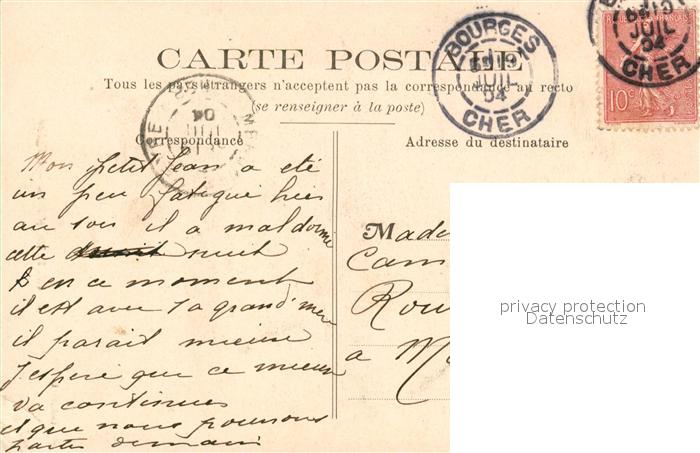 CARTE POSTALE
Tous les pays étrangers n'acceptent pas la correspondance au recto
(se renseigner à la poste)
BOURGES
JUIL
04
CHER
JUIL
04
CHER
REPUBLIQUE FRANÇAISE
10c
04
Correspondance
Adresse du destinataire
Mon petit Jean a été
un peu fatigué hier
au soir il a mal dormi
cette nuit
en ce moment
il est avec sa grand'mère
il parait mieux
J'espère que ce mieux
va continuer
et que nous pourrons
partir demain
Madame
Cam
Rou
a M
privacy protection
Datenschutz